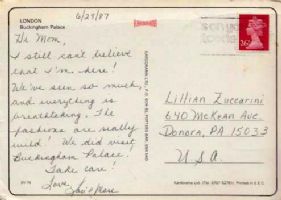 LONDON
Buckingham Palace
6/25/87
Dr Mom,
I still can't believe
that I'm here!
We've seen so much,
and everything is
breathtaking. The
fashions are really
wild! We did visit
Buckingham Palace.
Take care!
Love,
Lillian Zuccarini
640 McKean Ave.
Donora, PA 15033
U.S.A.